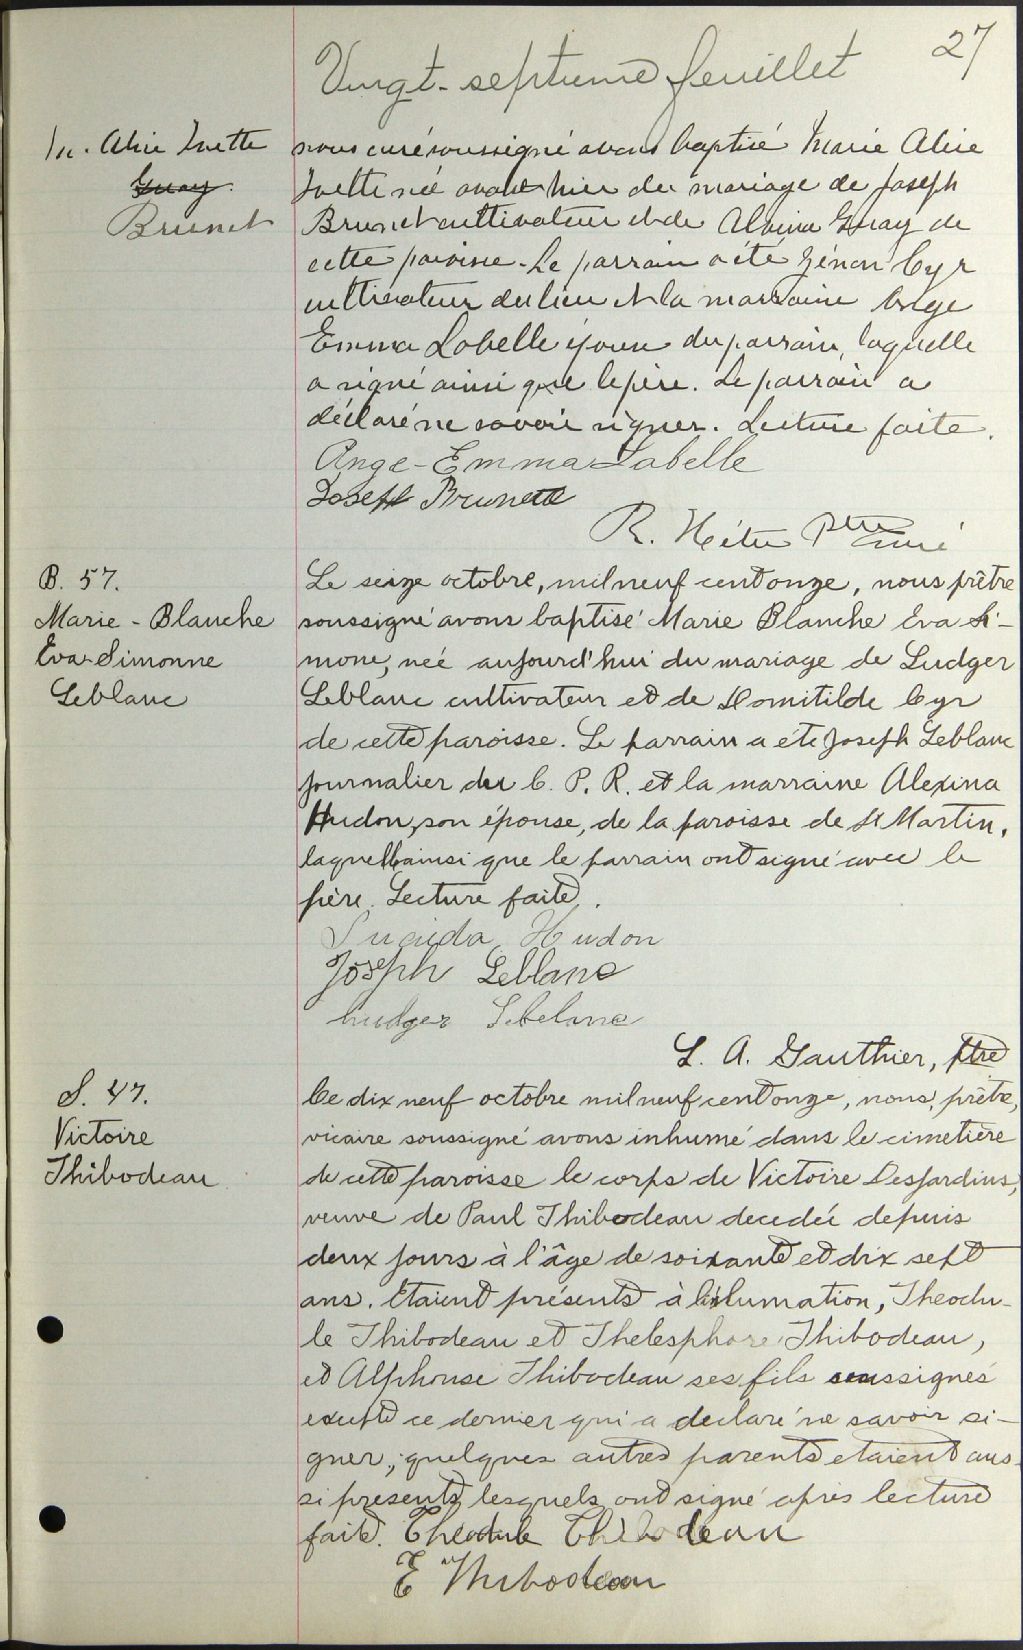 27
Vingt-septième feuillet
M. Alice Ivette
Guay
Brunet
nous curé soussigné avons baptisé Marie Alice
Ivette née avant hier du mariage de Joseph
Brunet cultivateur et de Alvina Guay de
cette paroisse. Le parrain a été Zénon Cyr
cultivateur du lieu et la marraine Ange
Emma Labelle épouse du parrain, laquelle
a signé ainsi que le père. Le parrain a
déclaré ne savoir signer. Lecture faite.
Ange-Emma Labelle
Joseph Brunette
R. Hétu Ptre curé
B. 57.
Marie-Blanche
Eva-Simonne
Leblanc
Le seize octobre, mil neuf cent onze, nous prêtre
soussigné avons baptisé Marie Blanche Eva Si-
mone, née aujourd'hui du mariage de Ludger
Leblanc cultivateur et de Domitilde Cyr
de cette paroisse. Le parrain a été Joseph Leblanc
journalier du C. P. R. et la marraine Alexina
Hudon, son épouse, de la paroisse de St Martin,
laquelle ainsi que le parrain ont signé avec le
père. Lecture faite.
Hudon
Joseph Leblanc
Ludger Leblanc
L. A. Gauthier, ptre
S. 47.
Victoire
Thibodeau
Le dix neuf octobre mil neuf cent onze, nous, prêtre,
vicaire soussigné avons inhumé dans le cimetière
de cette paroisse le corps de Victoire Desjardins,
veuve de Paul Thibodeau decedée depuis
deux jours à l'âge de soixante et dix sept
ans. Etaient présents à l'inhumation, Theodu-
le Thibodeau et Thelesphore Thibodeau,
et Alphonse Thibodeau ses fils soussignés
excepté ce dernier qui a declaré ne savoir si-
gner; quelques autres parents etaient aus-
si presents lesquels ont signé après lecture
faite. Théodule Thibodeau
E Thibodeau